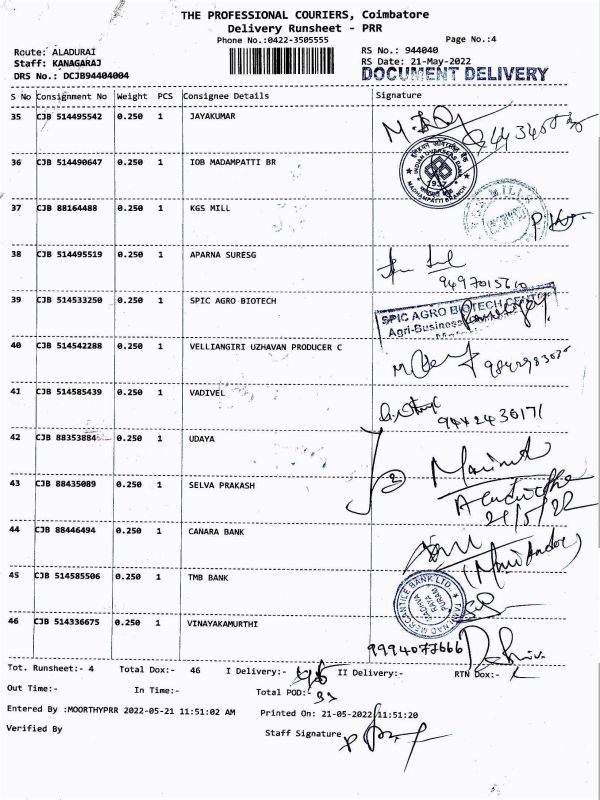 THE PROFESSIONAL COURIERS, Coimbatore
Delivery Runsheet - PRR
Phone No.:0422-3505555
Page No.:4
Route: ALADURAI
RS No.: 944040
Staff: KANAGARAJ
RS Date: 21-May-2022
DRS No.: DCJB94404004
DOCUMENT DELIVERY
S No Consignment No Weight PCS Consignee Details Signature
35 CJB 514495542 0.250 1 JAYAKUMAR
36 CJB 514490647 0.250 1 IOB MADAMPATTI BR
INDIAN OVERSEAS BANK
MADHAMPATTI BRANCH
37 CJB 88164488 0.250 1 KGS MILL
MILLS
38 CJB 514495519 0.250 1 APARNA SURESG
9497015610
39 CJB 514533250 0.250 1 SPIC AGRO BIOTECH
SPIC AGRO BIOTECH CENTRE
Agri-Business
40 CJB 514542288 0.250 1 VELLIANGIRI UZHAVAN PRODUCER C
41 CJB 514585439 0.250 1 VADIVEL
9442436171
42 CJB 88353884 0.250 1 UDAYA
2
43 CJB 88435089 0.250 1 SELVA PRAKASH
21/5/22
44 CJB 88446494 0.250 1 CANARA BANK
45 CJB 514585506 0.250 1 TMB BANK
TAMILNAD MERCANTILE BANK LTD.
46 CJB 514336675 0.250 1 VINAYAKAMURTHI
9994077666
Tot. Runsheet:- 4 Total Dox:- 46 I Delivery:- II Delivery:- RTN Dox:-
Out Time:- In Time:- Total POD:-
Entered By :MOORTHYPRR 2022-05-21 11:51:02 AM Printed On: 21-05-2022 11:51:20
Verified By Staff Signature